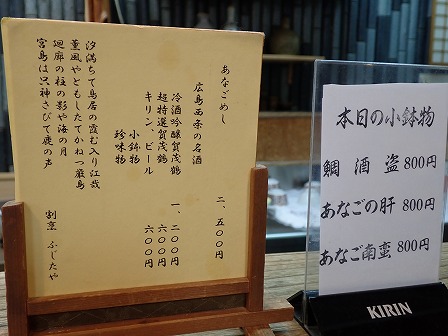 あなごめし 二、五〇〇円
広島西条の名酒
冷酒吟醸賀茂鶴 一、二〇〇円
超特選賀茂鶴 六〇〇円
キリン、ビール 六〇〇円
小鉢物
珍味物
汐満ちて鳥居の霞む入り江哉
薫風やともしたてかねつ厳島
廻廊の柱の影や海の月
宮島は只神さびて鹿の声
割烹 ふじたや
本日の小鉢物
鯛 酒 盗 800円
あなごの肝 800円
あなご南蛮 800円
KIRIN